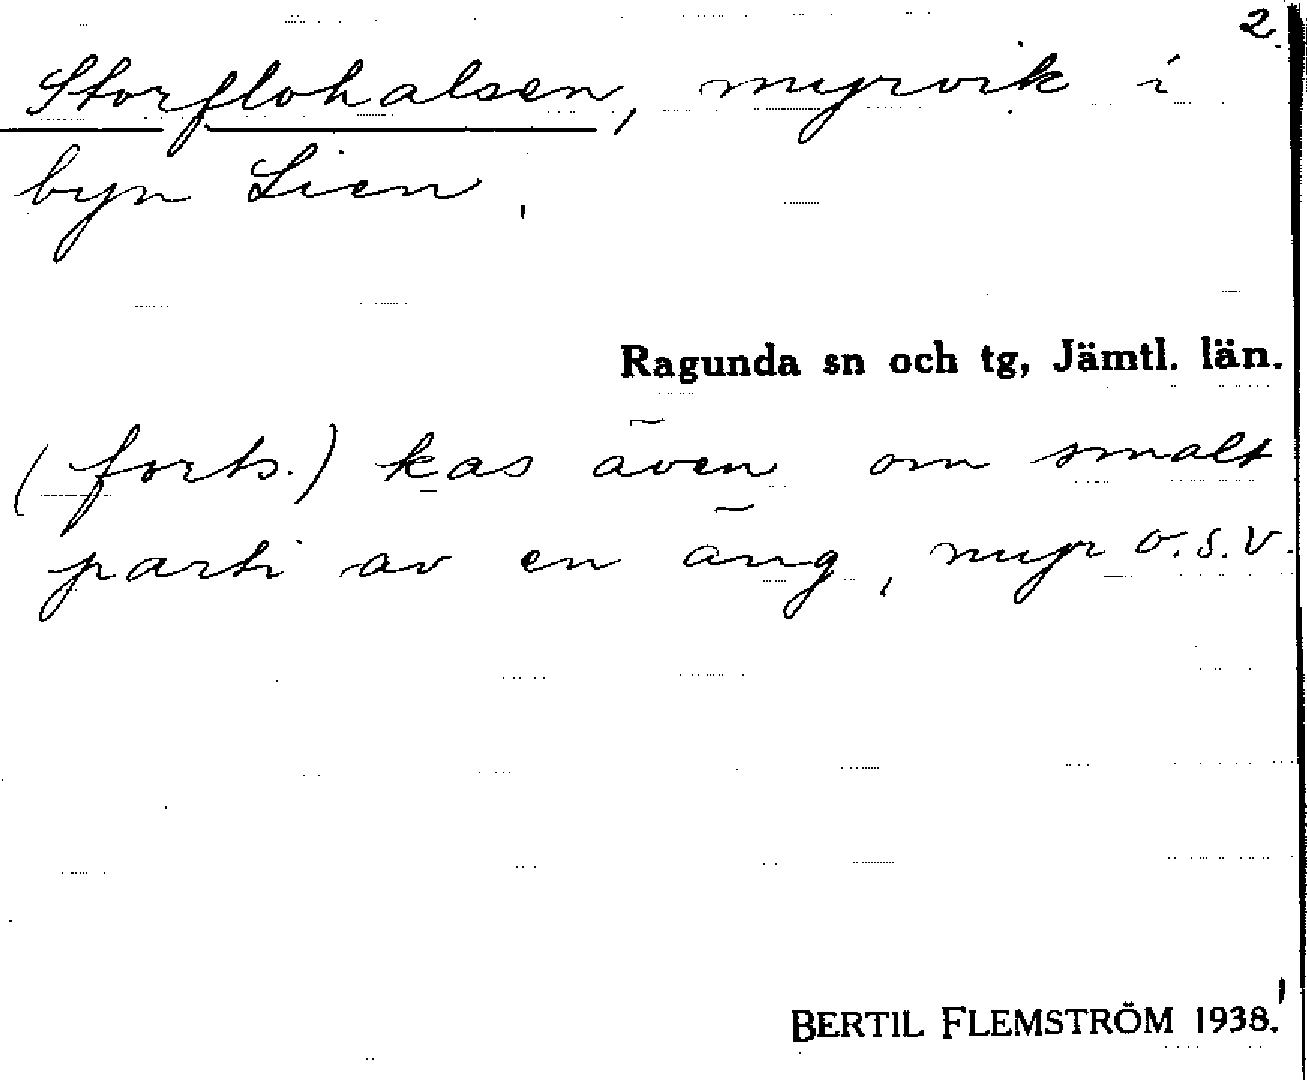 2.
Storflohalsen, myrvik i
byn Lien.
Ragunda sn och tg, Jämtl. län.
(forts.) kas även om smalt
parti av en äng, myr o.s.v.
BERTIL FLEMSTRÖM 1938.